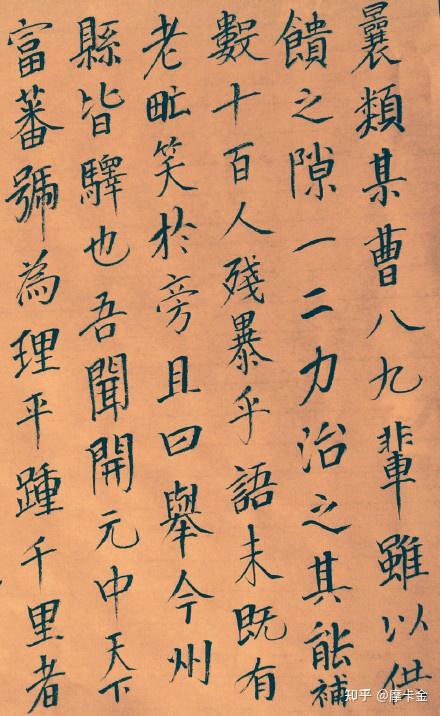 曩類某曹八九輩雖以供
饋之隙一二力治之其能補
數十百人殘暴乎語未既有
老甿笑於旁且曰舉今州
縣皆驛也吾聞開元中天下
富蕃號為理平踵千里者
知乎 @摩卡金